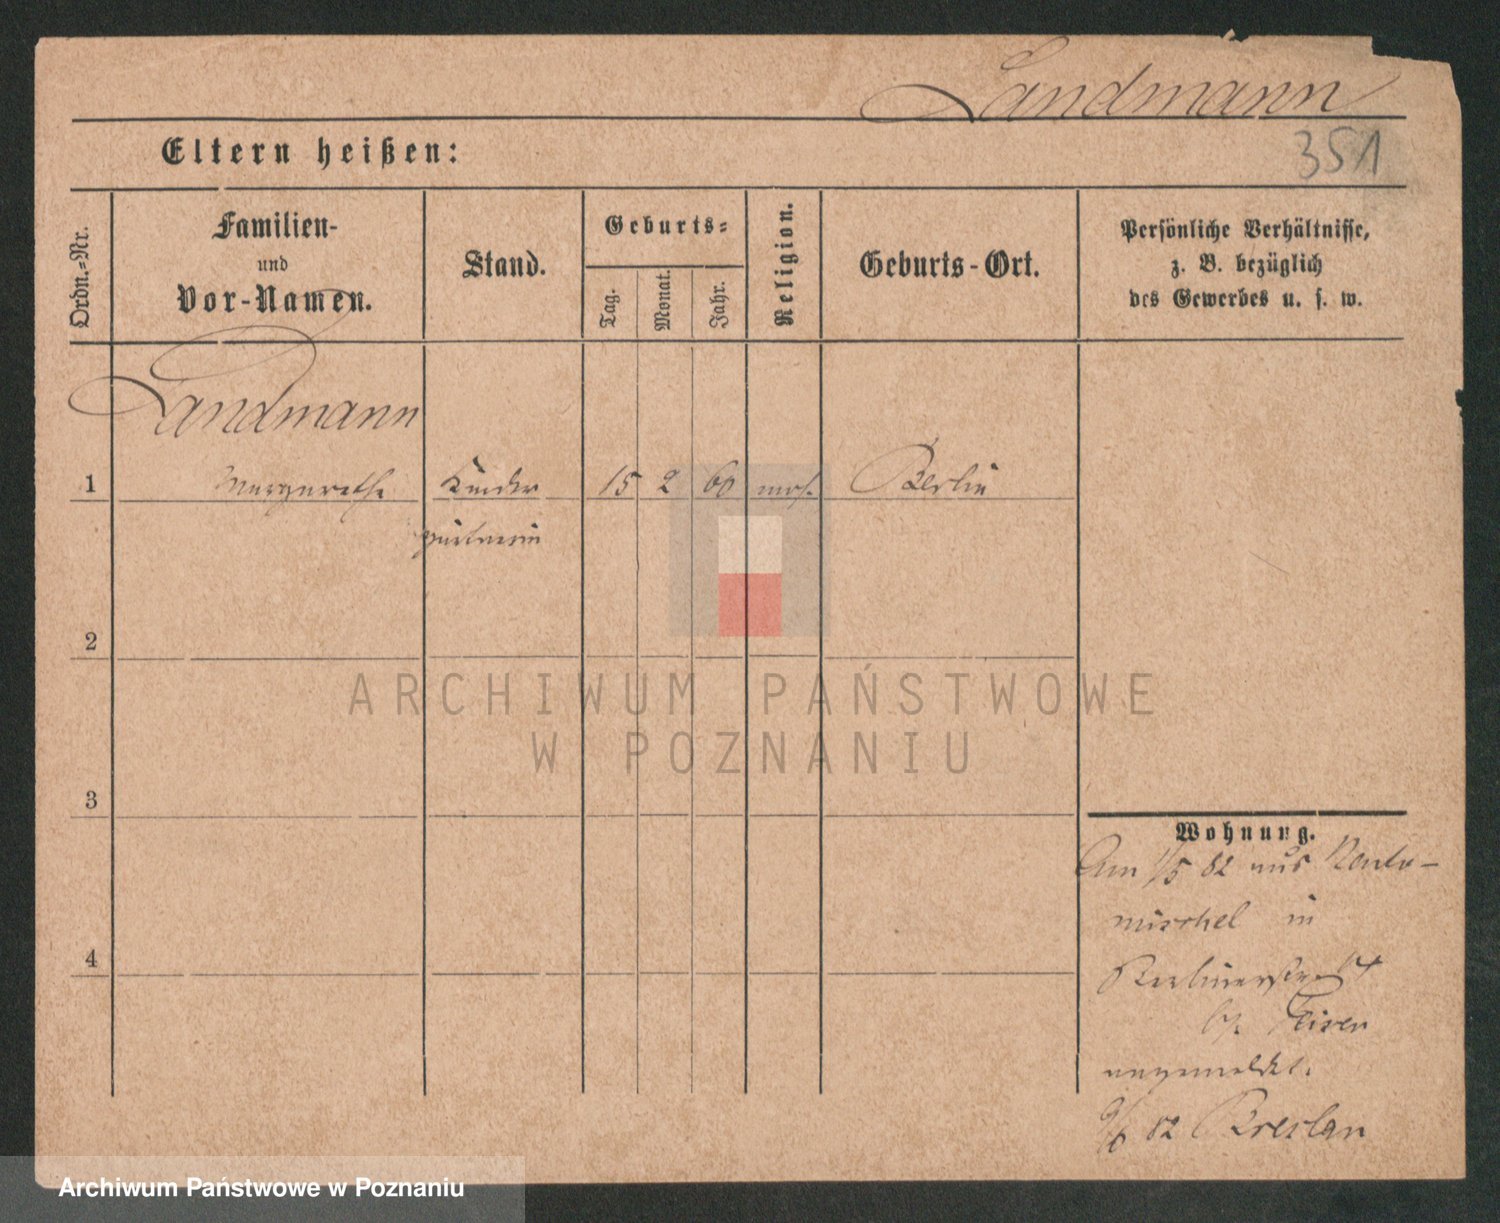 Landmann
351
Eltern heißen:
Ordn.-Nr.
Familien-
und
Vor-Namen.
Stand.
Geburts-
Tag.
Monat.
Jahr.
Religion.
Geburts-Ort.
Persönliche Verhältnisse,
z. B. bezüglich
des Gewerbes u. s. w.
Landmann
1 Margarethe Kinder 15 2 60 mos. Berlin
gärtnerin
2
3
4
Wohnung.
Am 1/5 82 aus Neuto-
mischel in
Berlinerstr.
angemeldet.
82 Breslau
ARCHIWUM PAŃSTWOWE
W POZNANIU
Archiwum Państwowe w Poznaniu